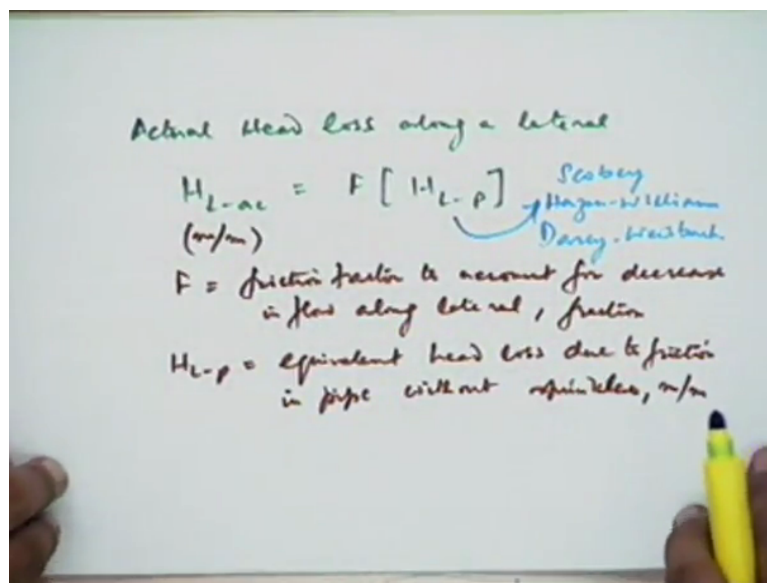 Actual Head loss along a lateral
H L-ac = F [ H L-p ] Scobey
Hazen-William
(m/m)
Darcy-Weisbach
F = friction fraction to account for decrease
in flow along lateral, fraction
H L-p = equivalent head loss due to friction
in pipe without sprinklers, m/m